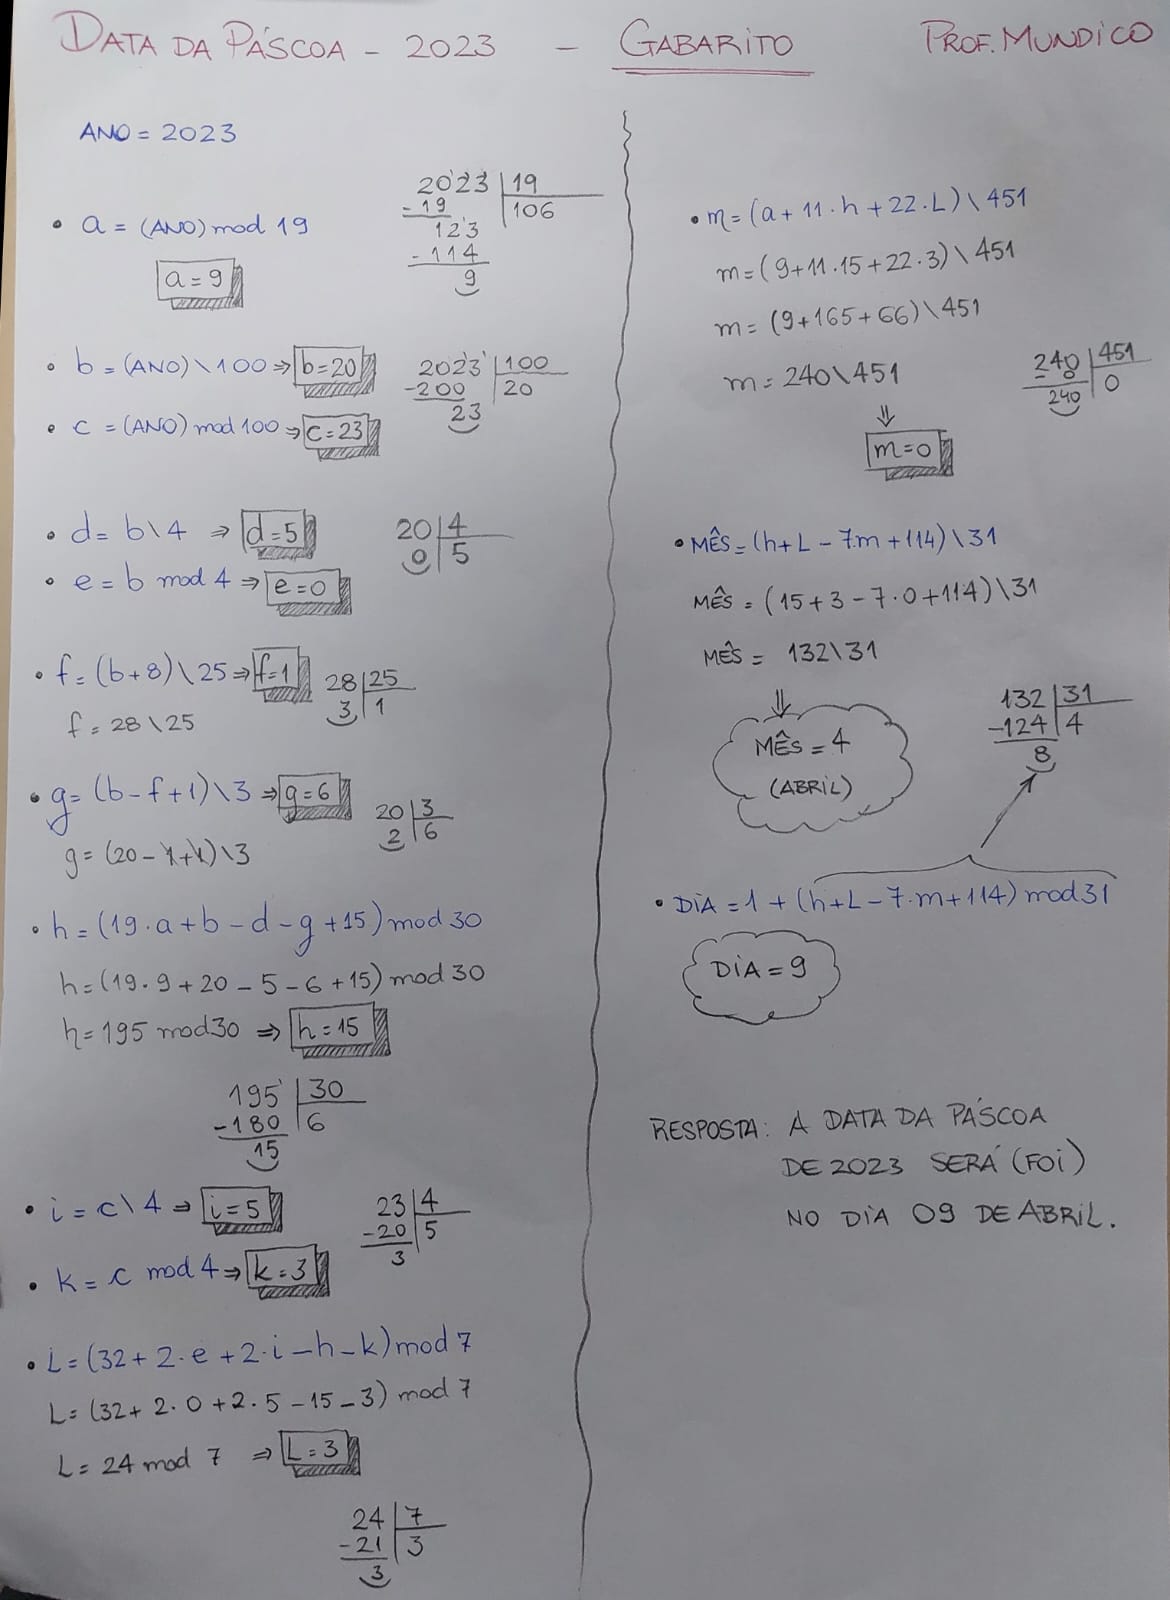 DATA DA PÁSCOA - 2023 - GABARITO PROF. MUNDICO
ANO = 2023
• a = (ANO) mod 19
a = 9
2023 | 19
- 19 106
123
- 114
9
• b = (ANO) \ 100 ⇒ b = 20
• c = (ANO) mod 100 ⇒ c = 23
2023 | 100
-200 20
23
• d = b \ 4 ⇒ d = 5
• e = b mod 4 ⇒ e = 0
20 | 4
0 | 5
• f = (b+8) \ 25 ⇒ f = 1
f = 28 \ 25
28 | 25
3 | 1
• g = (b - f + 1) \ 3 ⇒ g = 6
g = (20 - 1 + 1) \ 3
20 | 3
2 | 6
• h = (19 · a + b - d - g + 15) mod 30
h = (19 · 9 + 20 - 5 - 6 + 15) mod 30
h = 195 mod 30 ⇒ h = 15
195 | 30
-180 | 6
15
• i = c \ 4 ⇒ i = 5
• k = c mod 4 ⇒ k = 3
23 | 4
-20 | 5
3
• L = (32 + 2 · e + 2 · i - h - k) mod 7
L = (32 + 2 · 0 + 2 · 5 - 15 - 3) mod 7
L = 24 mod 7 ⇒ L = 3
24 | 7
-21 | 3
3
• m = (a + 11 · h + 22 · L) \ 451
m = (9 + 11 · 15 + 22 · 3) \ 451
m = (9 + 165 + 66) \ 451
m = 240 \ 451
⇓
m = 0
240 | 451
- 0 | 0
240
• MÊS = (h + L - 7m + 114) \ 31
MÊS = (15 + 3 - 7 · 0 + 114) \ 31
MÊS = 132 \ 31
⇓
MÊS = 4
(ABRIL)
132 | 31
-124 | 4
8
• DIA = 1 + (h + L - 7 · m + 114) mod 31
DIA = 9
RESPOSTA: A DATA DA PÁSCOA
DE 2023 SERÁ (FOI)
NO DIA 09 DE ABRIL.